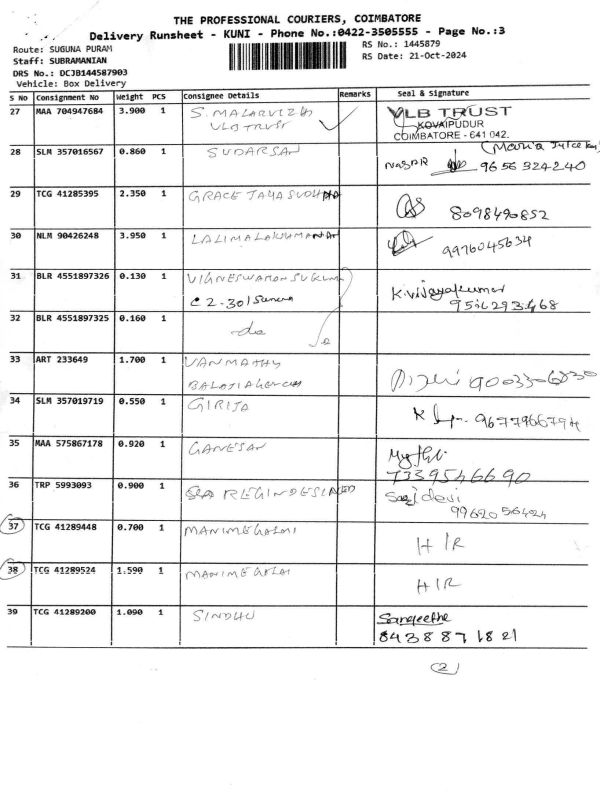 THE PROFESSIONAL COURIERS, COIMBATORE
Delivery Runsheet - KUNI - Phone No.:0422-3505555 - Page No.:3
Route: SUGUNA PURAM
RS No.: 1445879
Staff: SUBRAMANIAN
RS Date: 21-Oct-2024
DRS No.: DCJB144587903
Vehicle: Box Delivery
S No Consignment No Weight PCS Consignee Details Remarks Seal & Signature
27 MAA 704947684 3.900 1 S. MALARVIZHI VLB TRUST
VLB TRUST
KOVAIPUDUR
COIMBATORE - 641 042.
28 SLM 357016567 0.860 1 SUDARSAN 9656324240
29 TCG 41285395 2.350 1 GRACE JAYA 8098490852
30 NLM 90426248 3.950 1 9976045634
31 BLR 4551897326 0.130 1 VIGNESWARAN
C2-301 K.Vijayakumar
32 BLR 4551897325 0.160 1 -do
33 ART 233649 1.700 1 VANMATHY
BALAJI
34 SLM 357019719 0.550 1 GIRIJA
35 MAA 575867178 0.920 1 GANESAN
7339546690
36 TRP 5993093 0.900 1
9962056424
37 TCG 41289448 0.700 1 MANIMEGALAI H/R
38 TCG 41289524 1.590 1 MANIMEGALAI H/R
39 TCG 41289200 1.090 1 SINDHU Sangeetha
8438871821
(2)